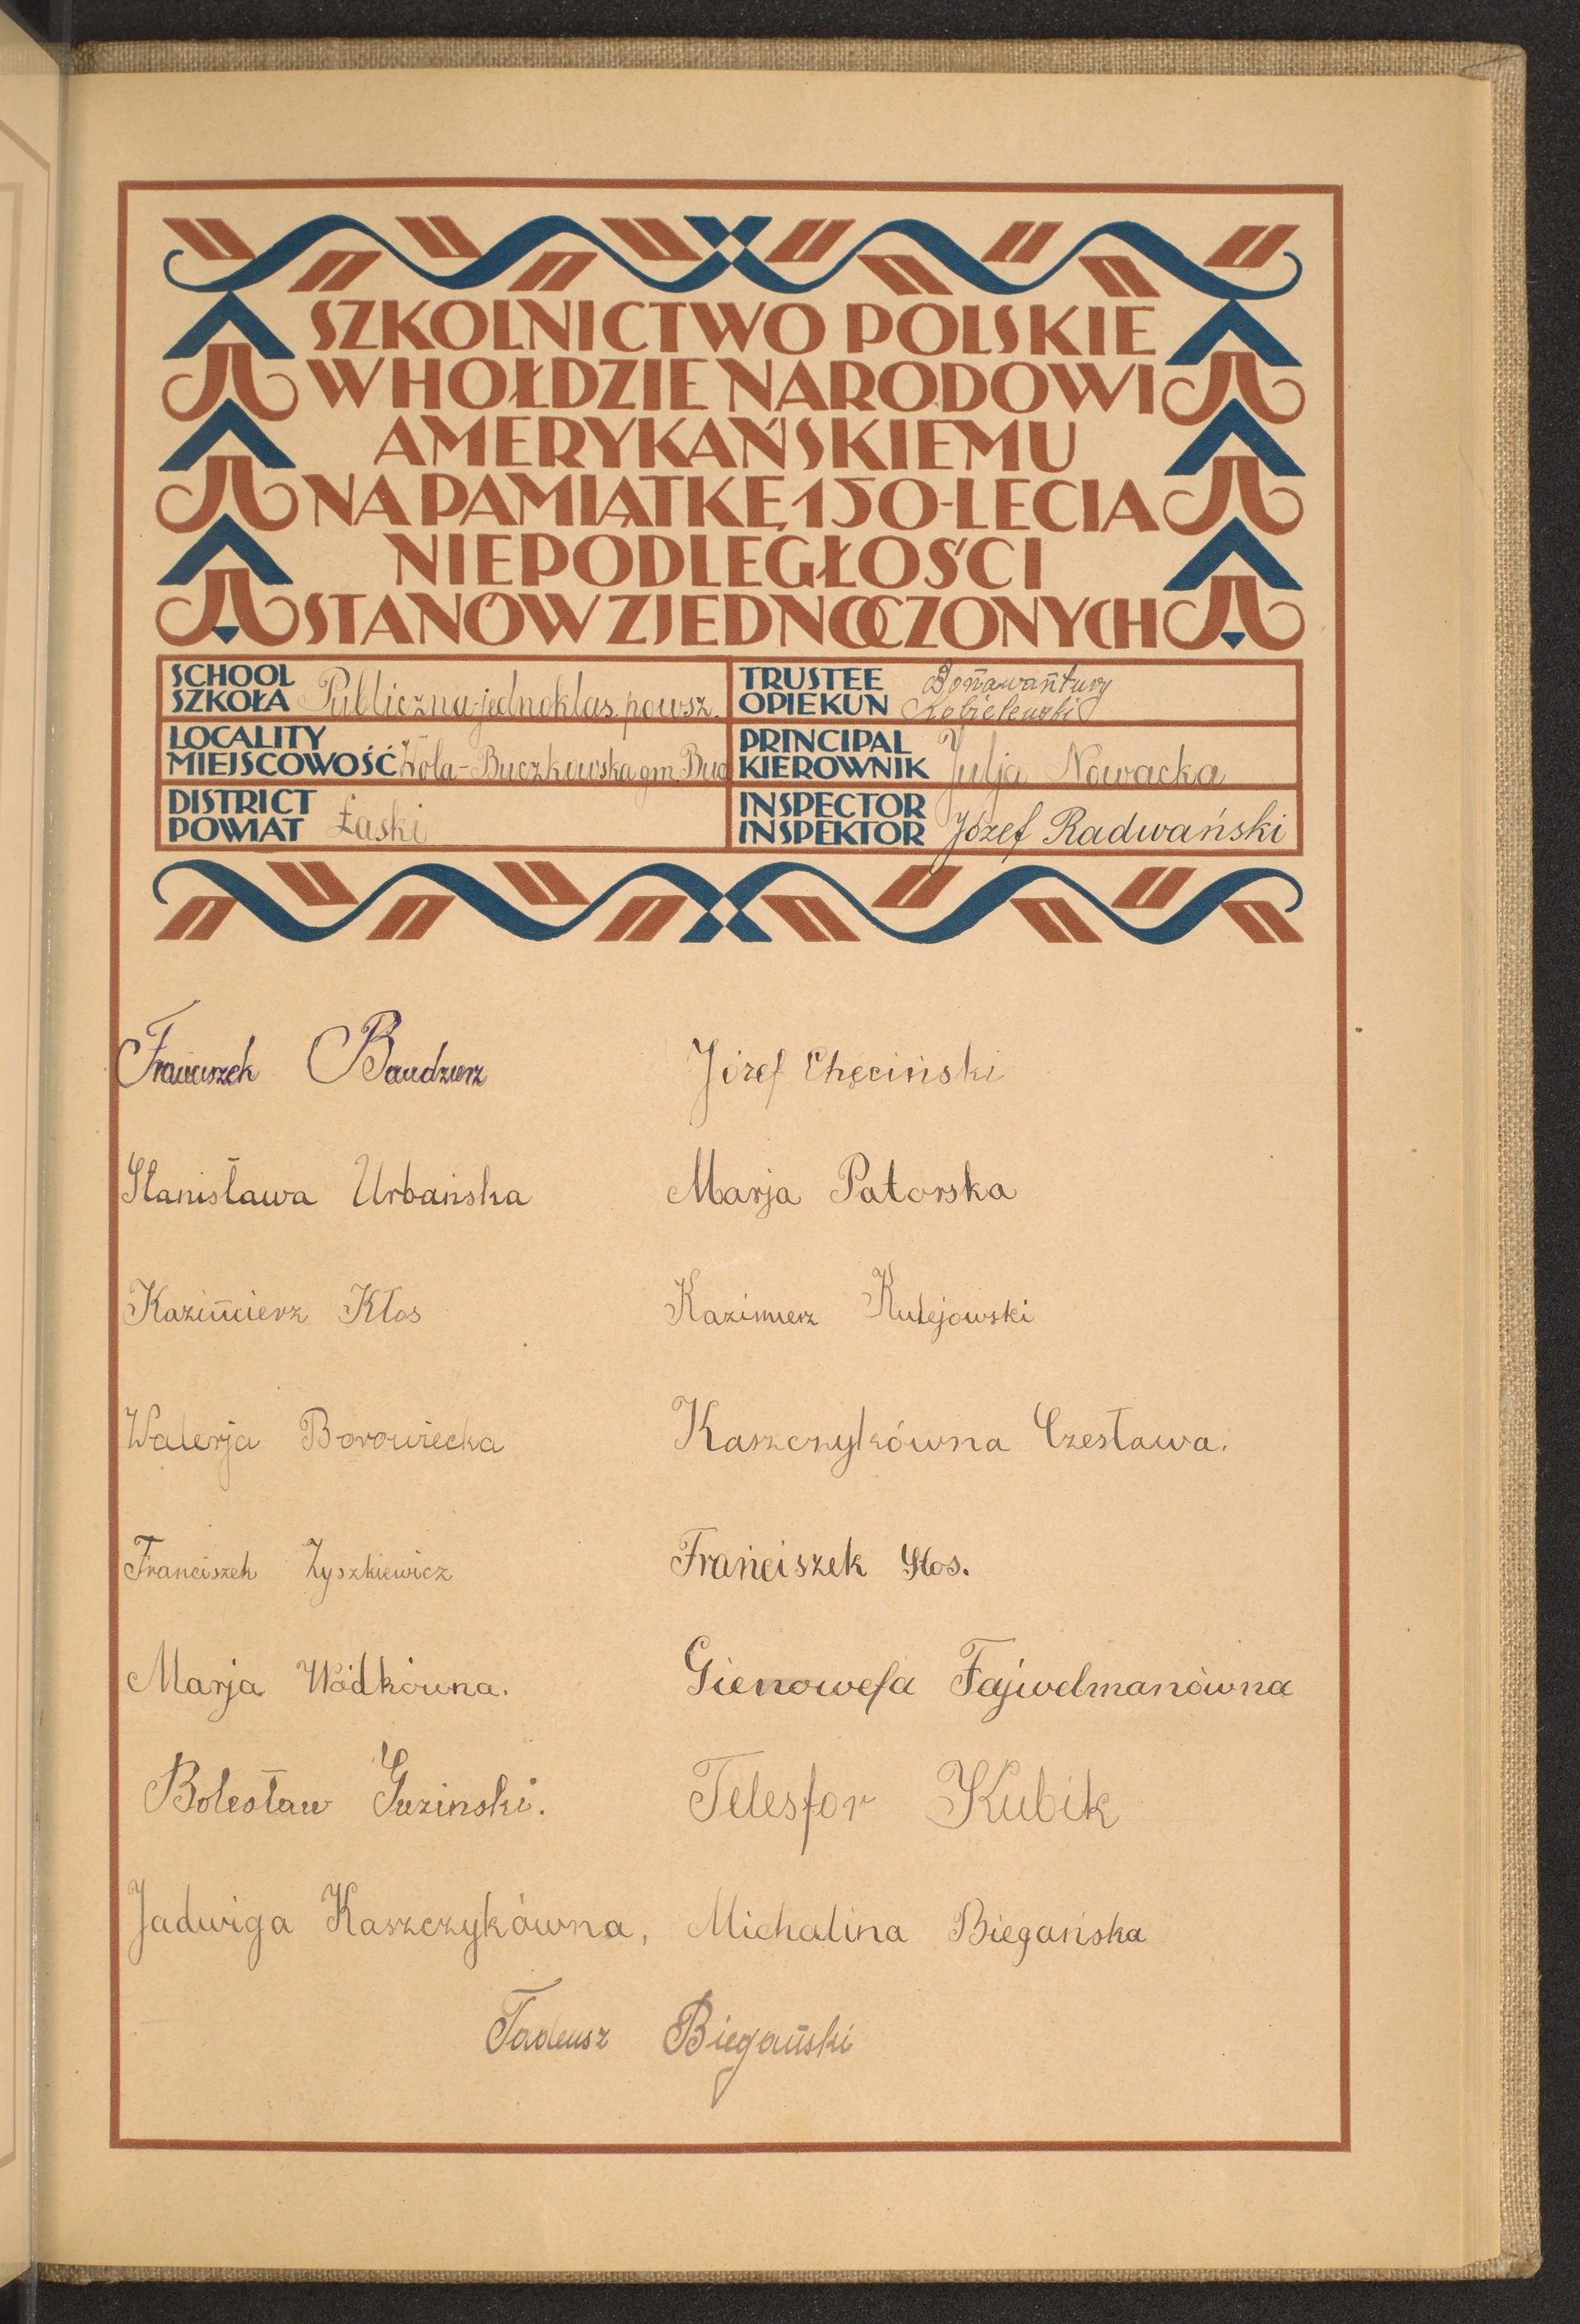 SZKOLNICTWO POLSKIE
W HOŁDZIE NARODOWI
AMERYKAŃSKIEMU
NA PAMIĄTKĘ 150-LECIA
NIEPODLEGŁOŚCI
STANÓW ZJEDNOCZONYCH
SCHOOL
SZKOŁA Publiczna jednoklas. powsz.
TRUSTEE
OPIEKUN Bonawantury Kobielewski
LOCALITY
MIEJSCOWOŚĆ Wola-Buczkowska gm. Bucz
PRINCIPAL
KIEROWNIK Julja Nowacka
DISTRICT
POWIAT Łaski
INSPECTOR
INSPEKTOR Józef Radwański
Franciszek Baudzierz Józef Chęciński
Stanisława Urbańska Marja Patorska
Kazimierz Kłos Kazimierz Kulejowski
Walerja Borowiecka Kaszczykówna Czesława.
Franciszek Zyszkiewicz Franciszek Głos.
Marja Wódkówna. Gienowefa Fajwelmanówna
Bolesław Guzinski. Telesfor Kubik
Jadwiga Kaszczykówna, Michalina Biegańska
Tadeusz Biegański